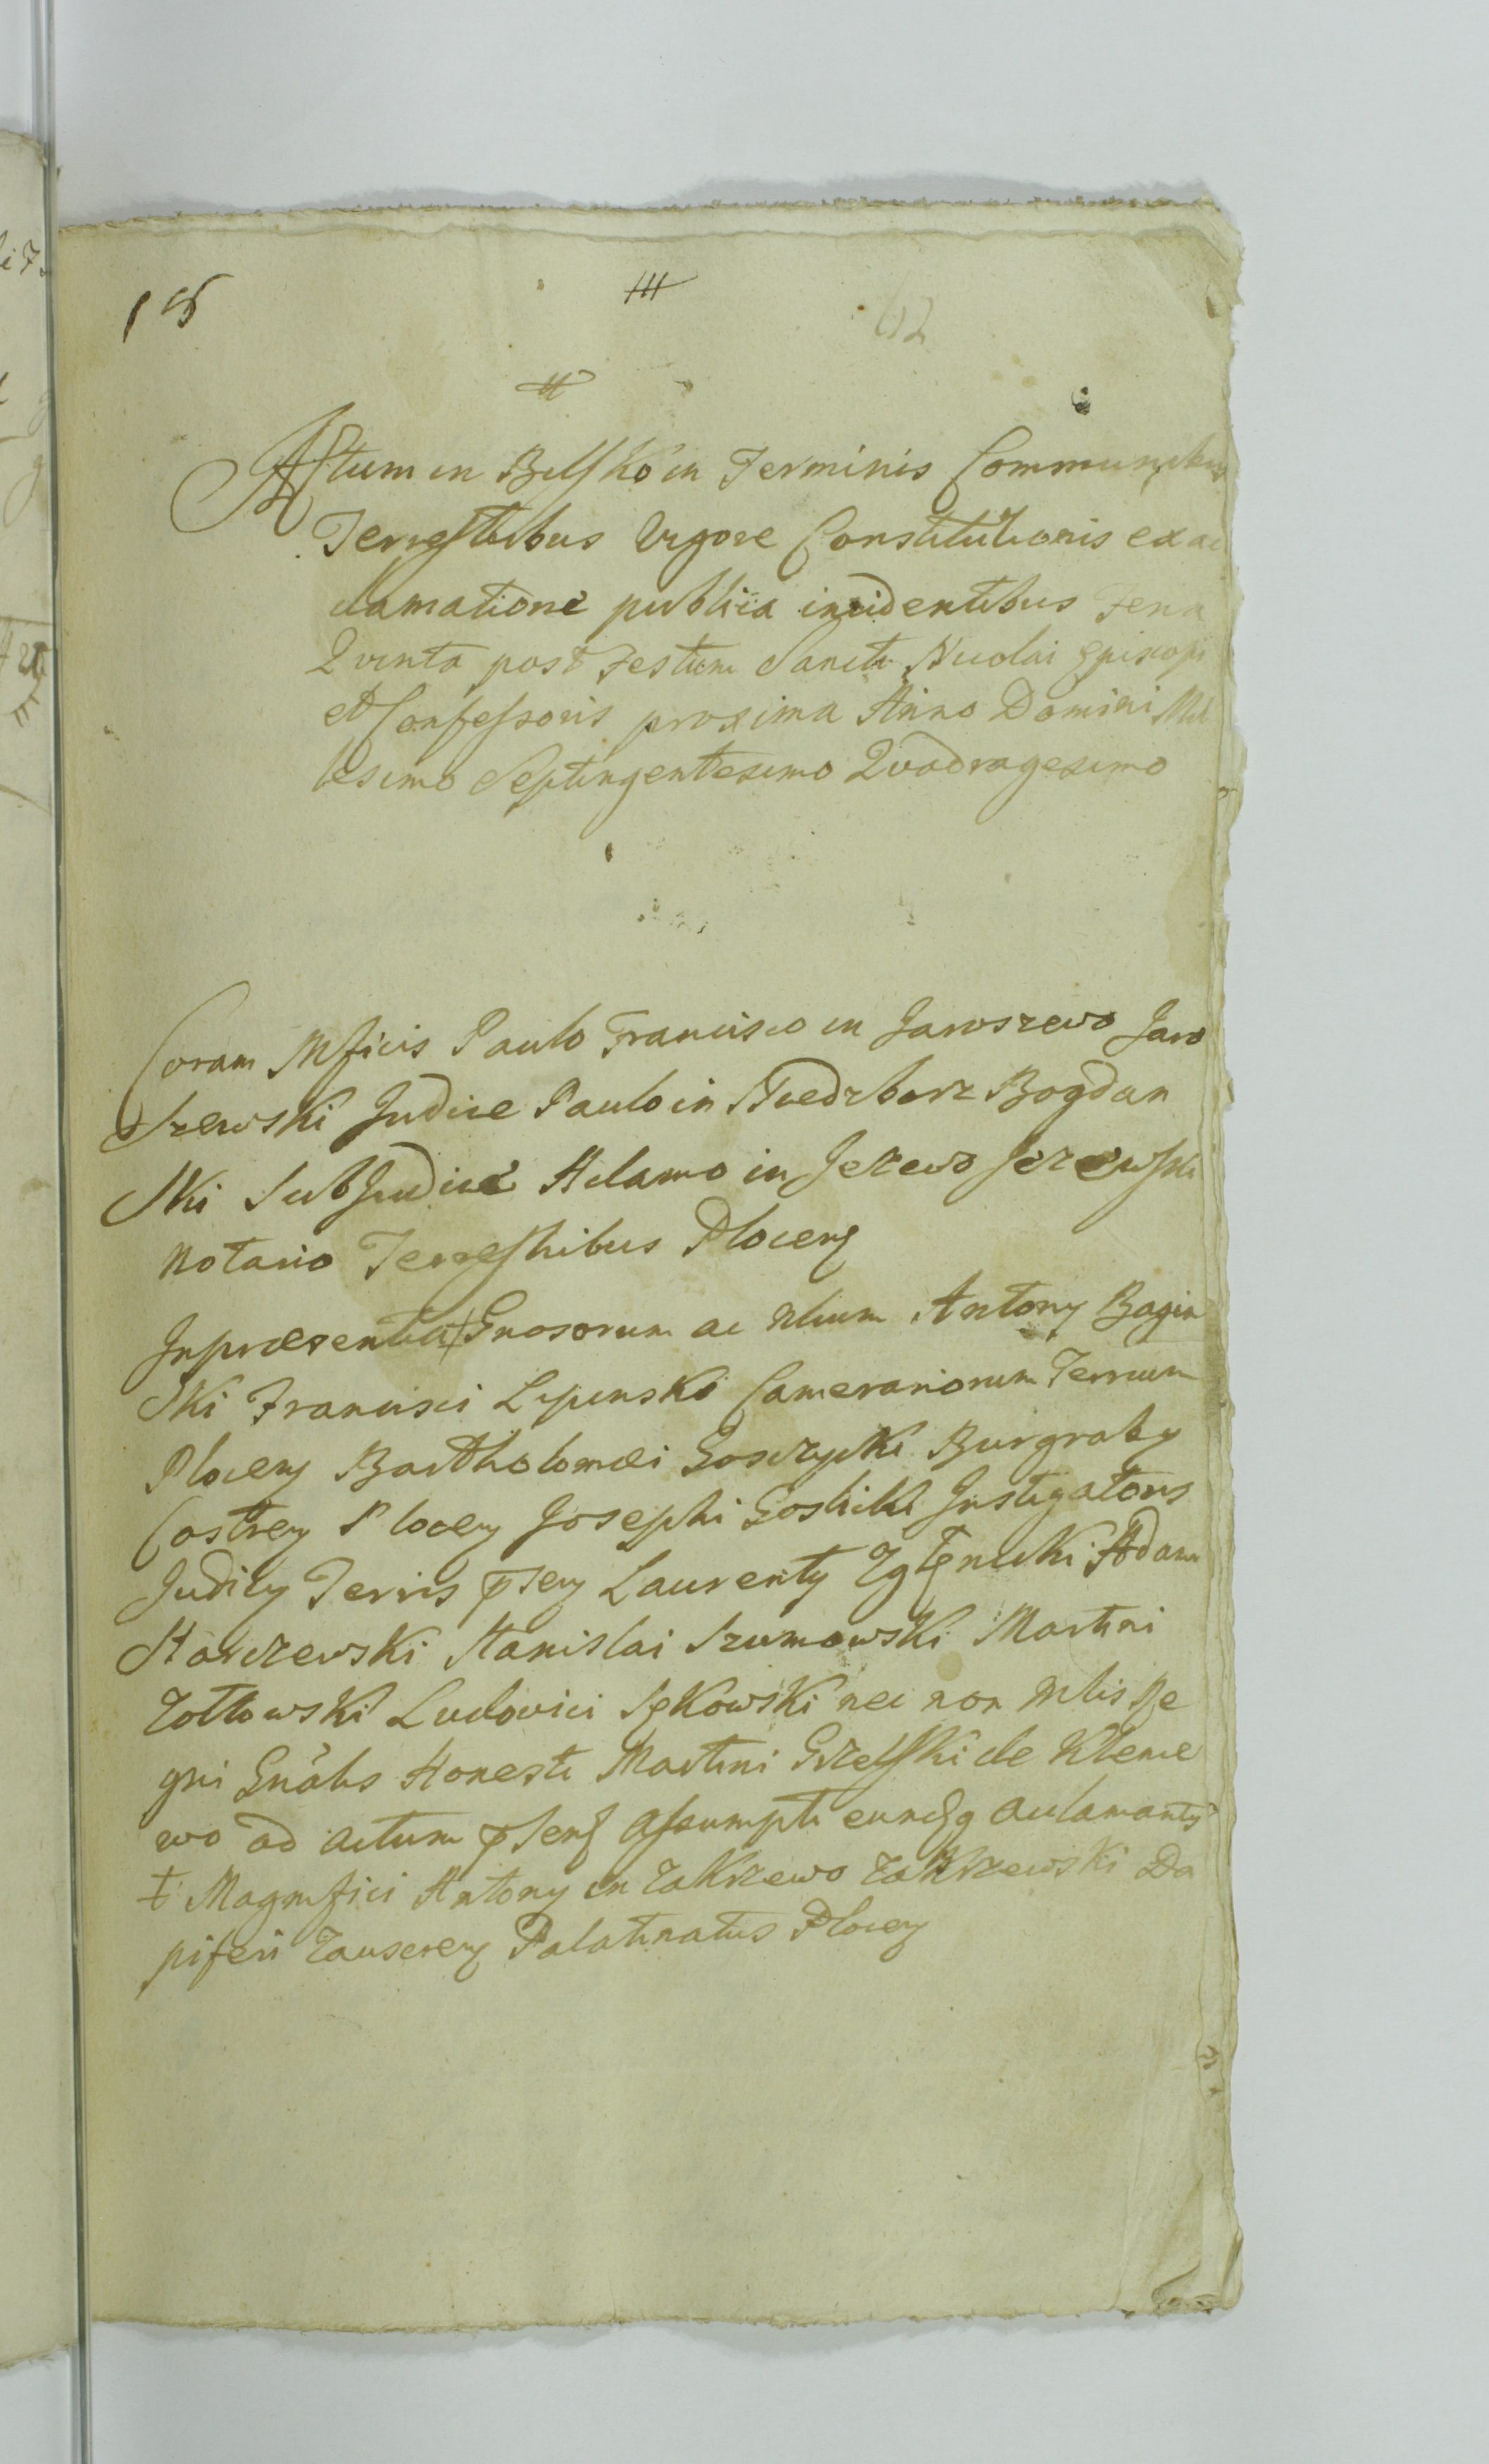 15
62
Actum in Bielsko in Terminis Communibus
Terrestribus Vigore Constitutionis ex ac
clamatione publica incidentibus Feria
Qvinta post Festum Sancti Nicolai Episcopi
et Confessoris proxima Anno Domini Mil
lesimo Septingentesimo Qvadragesimo
Coram Mficis Paulo Francisco in Jaroszewo Jaro
Szewski Judice Paulo in Niedzborz Bogdan
Ski SubJudice Adamo in Jezewo Jezewski
Notario Terrestribus Plocen
In præsentia ‡ Gnosorum ac Nlium Antony Bagin
Ski Francisci Lipinski Camerariorum Terrium
Plocen Bartholomæi Goszycki Burgraby
Castren Plocen Josephi Goslicki Instigatoris
Judicy Terris pnen Laurenty Zglenicki Adam
Starczewski Stanislai Szumowski Martini
Zoltowski Ludovici Sękowski nec non Mlis Re
gni Gnalis Honesti Martini Grzelski de
ewo ad actum pnsens assumpti eundq aclamantis
‡ Magnifici Antony in Zakrzewo Zakrzewski Da
piferi Zauscren Palatinatus Plocen